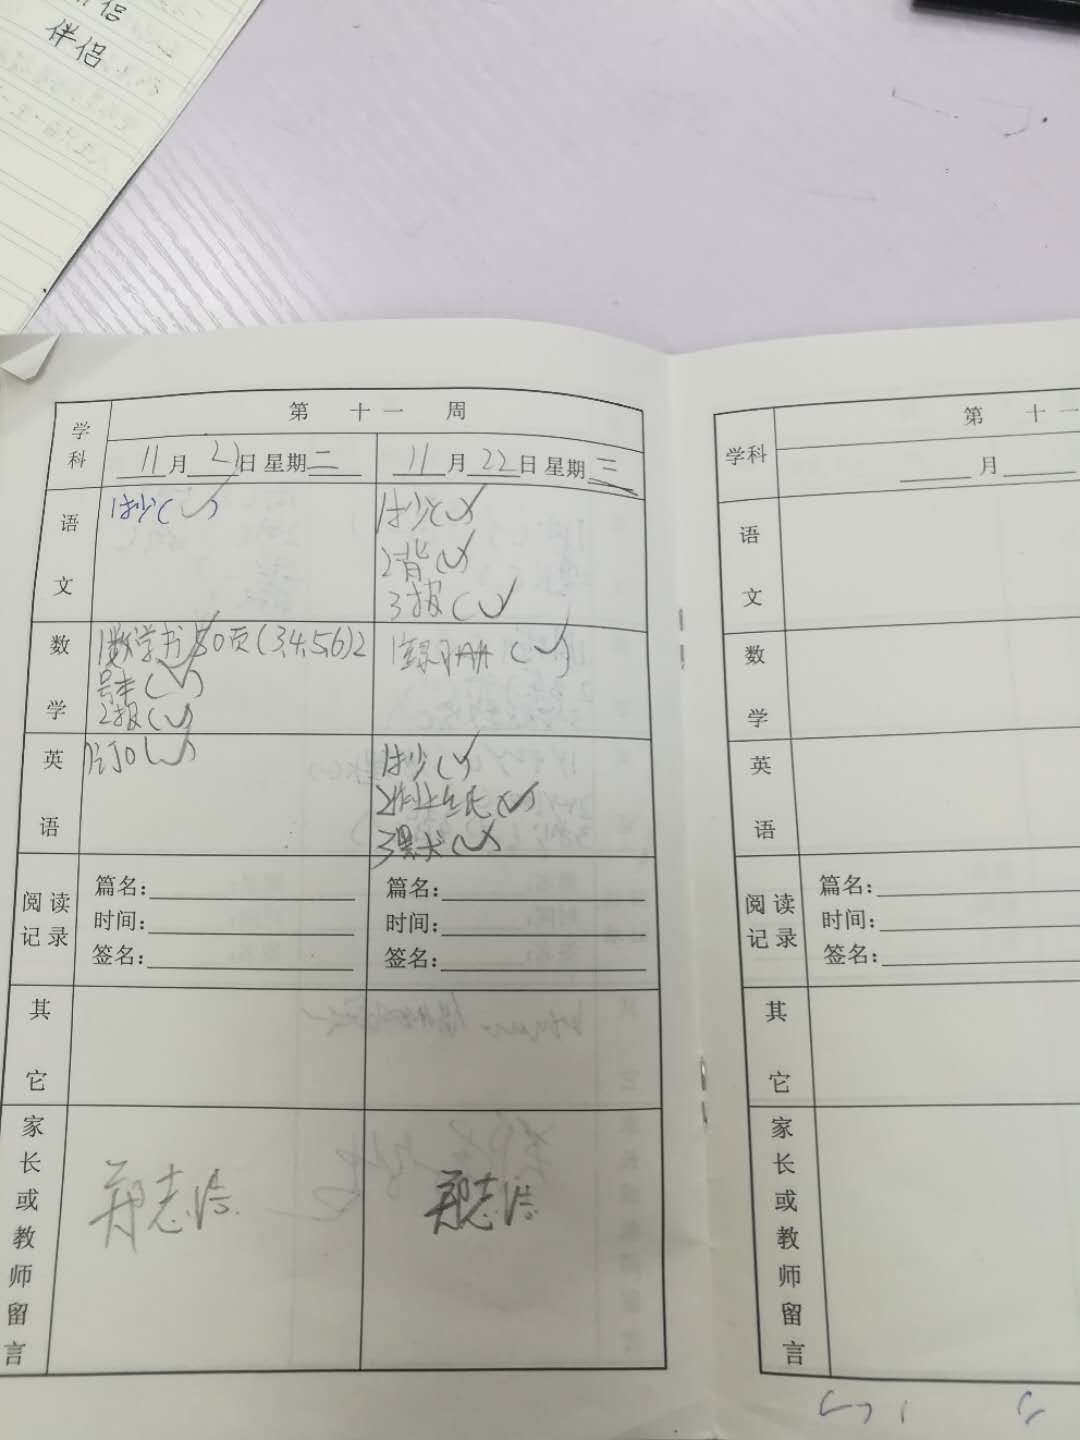 伴侣
第 十一 周
学科
11月21日 星期二
11月22日 星期三
语文
1抄(✓)
1抄(✓)
2背(✓)
3报(✓)
数学
1数学书50页(3,4,5,6)2
号本(✓)
2报(✓)
1练习册(✓)
英语
1订0(✓)
1抄(✓)
3课大(✓)
阅读记录
篇名:
时间:
签名:
篇名:
时间:
签名:
其它
家长或教师留言
郑志浩
郑志浩
第 十一
学科
月
语文
数学
英语
阅读记录
篇名:
时间:
签名:
其它
家长或教师留言